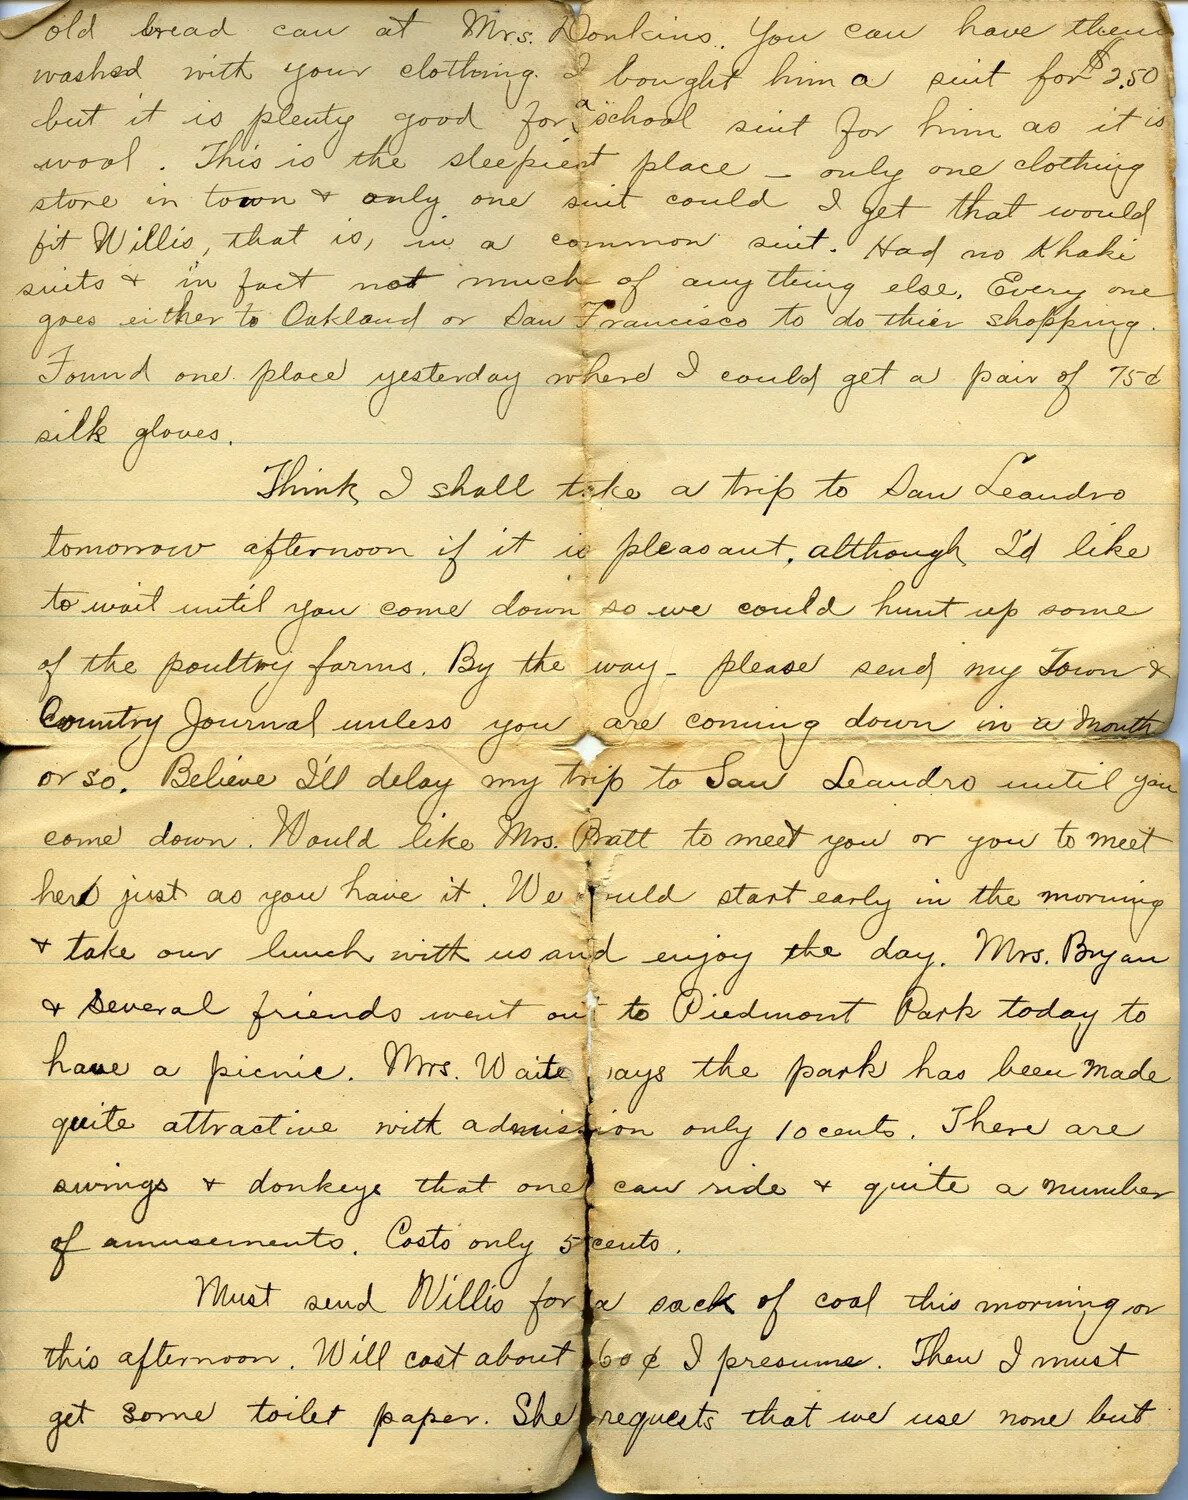 old bread can at Mrs. Donkins. You can have them
washed with your clothing. I bought him a suit for $2.50
but it is plenty good for a school suit for him as it is
wool. This is the sleepiest place – only one clothing
store in town & only one suit could I get that would
fit Willis, that is, in a common suit. Had no Khaki
suits & in fact not much of anything else. Every one
goes either to Oakland or San Francisco to do thier shopping.
Found one place yesterday where I could get a pair of 75¢
silk gloves.
Think I shall take a trip to San Leandro
tomorrow afternoon if it is pleasant, although I'd like
to wait until you come down so we could hunt up some
of the poultry farms. By the way – please send my Town &
Country Journal unless you are coming down in a month
or so. Believe I'll delay my trip to San Leandro until you
come down. Would like Mrs. Pratt to meet you or you to meet
her just as you have it. We could start early in the morning
& take our lunch with us and enjoy the day. Mrs. Bryan
& several friends went out to Piedmont Park today to
have a picnic. Mrs. Waite says the park has been made
quite attractive with admission only 10 cents. There are
swings & donkeys that one can ride & quite a number
of amusements. Costs only 5 cents.
Must send Willis for a sack of coal this morning or
this afternoon. Will cost about 60¢ I presume. Then I must
get some toilet paper. She requests that we use none but